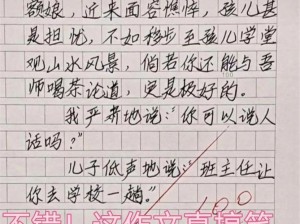 额娘，近来面容憔悴，孩儿甚
是担忧，不如移步至孩儿学堂
观山水风景，倘若你还能与吾
师喝茶论道，定是极好的。
我严肃地说：“你可以说人
话吗？”
儿子低声地说：“班主任让
你去学校一趟。”
100
不错！这作文真搞笑